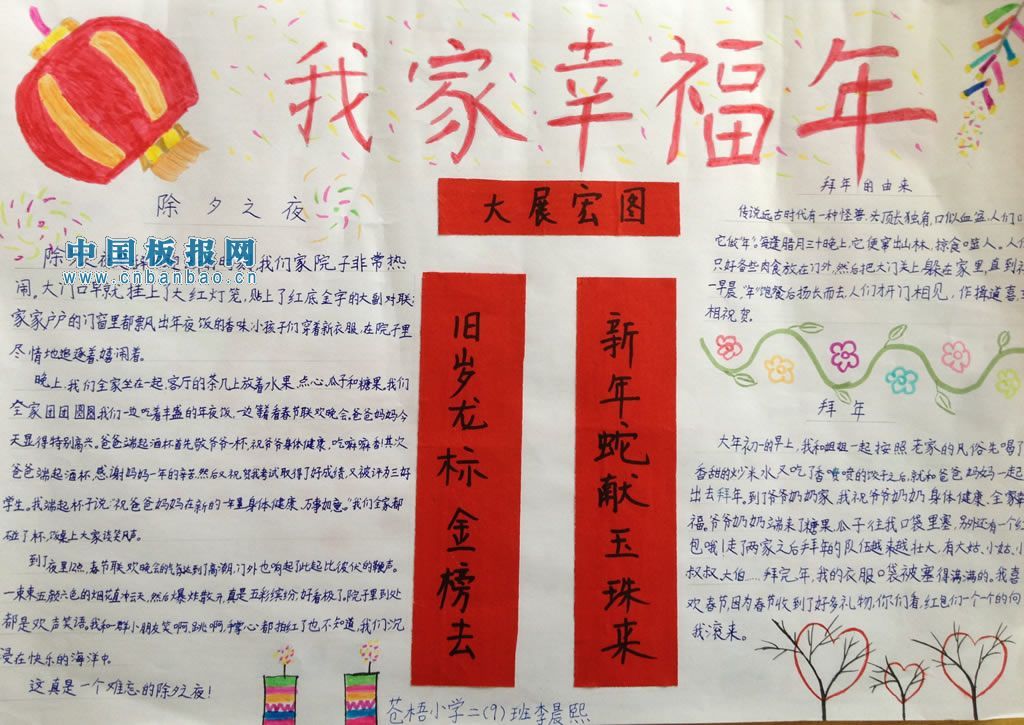 我家幸福年
大展宏图
旧岁龙标金榜去
新年蛇献玉珠来
除夕之夜
除
我们家院子非常热
闹。大门口早就挂上了大红灯笼,贴上了红底金字的大副对联
家家户户的门窗里都飘出年夜饭的香味小孩子们穿着新衣服,在院子里
尽情地追逐着,嬉闹着。
晚上,我们全家坐在一起,客厅的茶几上放着水果、点心、瓜子和糖果,我们
全家团团圆圆我们一边吃着丰盛的年夜饭,一边看着春节联欢晚会,爸爸妈妈今
天显得特别高兴。爸爸端起酒杯首先敬爷爷一杯,祝爷爷身体健康,吃嘛嘛香!其次
爸爸端起酒杯,感谢妈妈一年的辛苦,然后又祝贺我考试取得了好成绩,又被评为三好
学生。我端起杯子说:“祝爸爸妈妈在新的一年里身体健康、万事如意。”我们全家都
碰了杯,饭桌上大家谈笑风声。
到了夜里12点,春节联欢晚会的气氛达到了高潮,门外也响起了此起比伏的鞭声。
一束束五颜六色的烟花直冲云天,然后爆炸散开,真是五彩缤纷,好看极了。院子里到处
都是欢声笑语。我和一群小朋友笑啊,跳啊,手掌心都拍红了也不知道,我们沉
浸在快乐的海洋中。
这真是一个难忘的除夕之夜!
拜年的由来
传说远古时代有一种怪兽,头顶长独角,口似血盆,人们叫
它做“年”。每逢腊月三十晚上,它便窜出山林,掠食噬人。人们
只好备些肉食放在门外,然后把大门关上,躲在家里,直到初
一早晨,“年”饱餐后扬长而去,人们才开门相见,作揖道喜,互
相祝贺。
拜年
大年初一的早上,我和姐姐一起按照老家的风俗先喝了
香甜的炒米水又吃了香喷喷的饺子之后,就和爸爸妈妈一起
出去拜年。到了爷爷奶奶家,我祝爷爷奶奶身体健康、全家幸
福。爷爷奶奶端来了糖果、瓜子往我口袋里塞,别还有一个红
包哦!走了两家之后拜年的队伍越来越壮大,有大姑、小姑、小
叔叔、大伯……拜完年,我的衣服口袋被塞得满满的。我喜
欢春节,因为春节收到了好多礼物,你们看,红包们一个个的向
我滚来。
苍梧小学二(9)班李晨熙
中国板报网
www.cnbanbao.cn